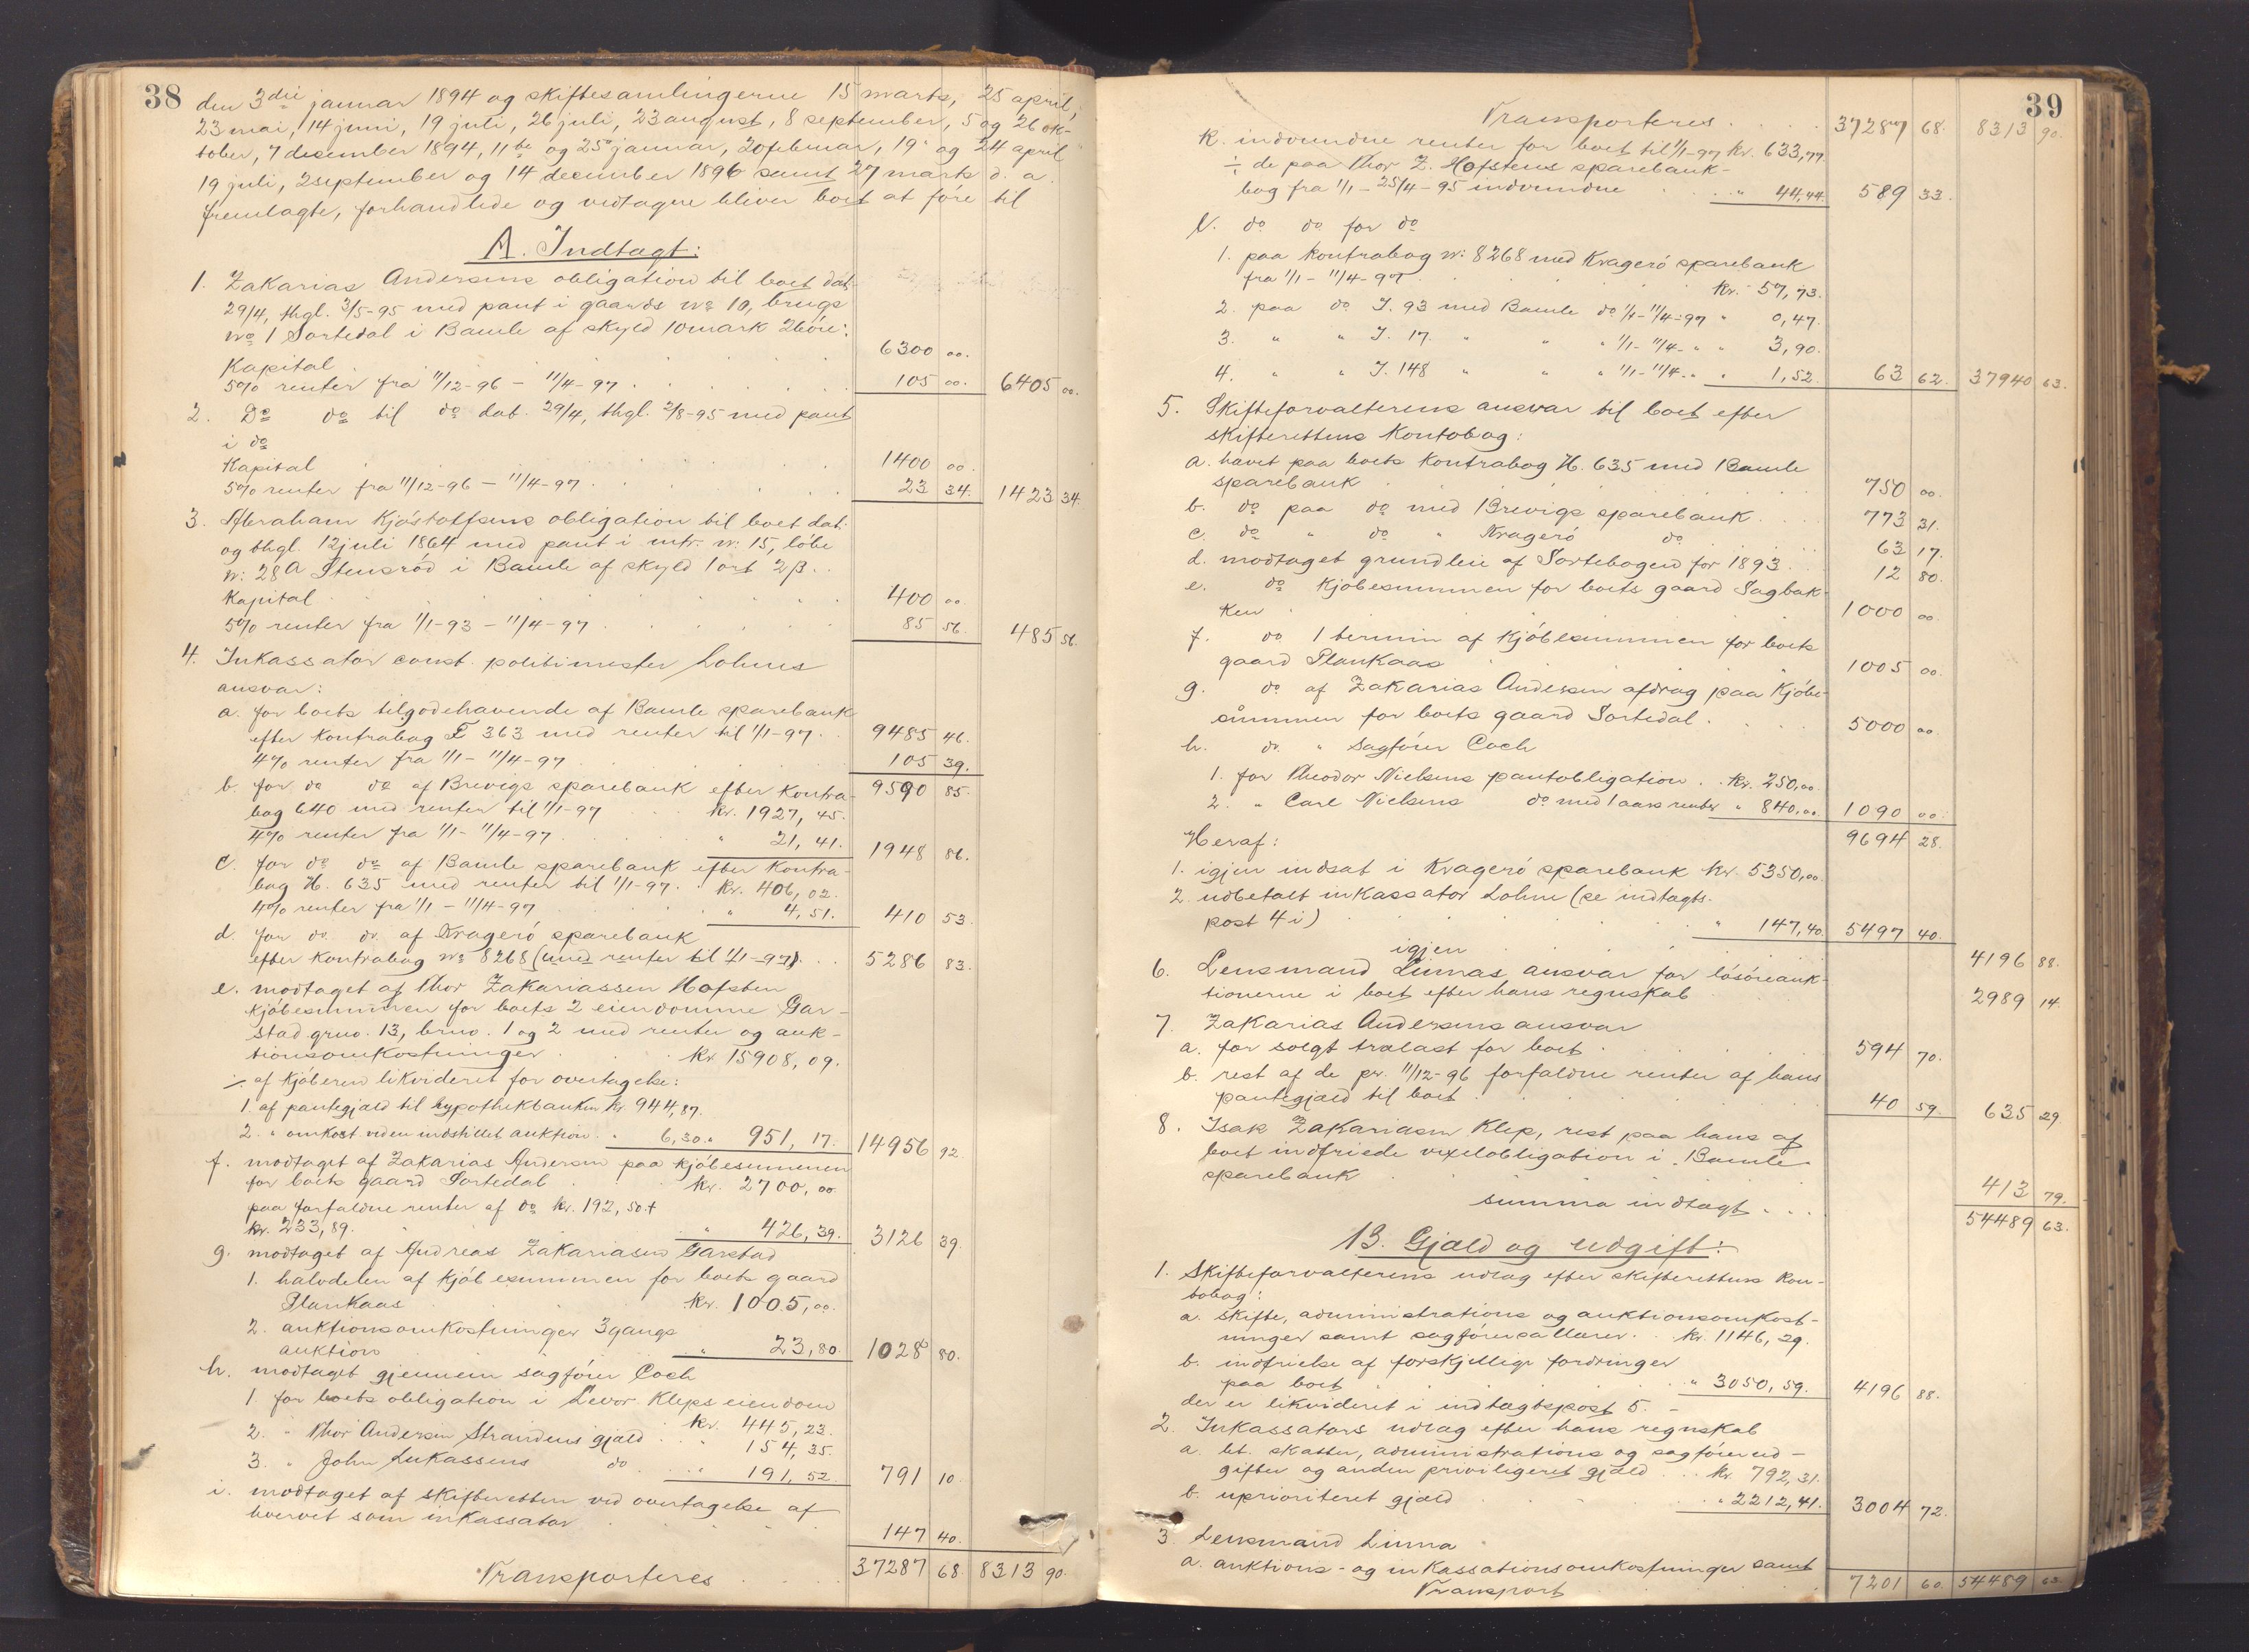 38
den 3die januar 1894 og skiftesamlingerne 15 marts, 25 april,
23 mai, 14 juni, 19 juli, 26 juli, 23 august, 8 september, 5 og 26 ok-
tober, 7 december 1894, 11te og 25 januar, 20 februar, 19 og 24 april
19 juli, 2 september og 14 december 1896 samt 27 marts d. a.
fremlagte, forhandlede og vedtagne bliver boet at føre til
A. Indtægt:
1. Zakarias Andersens obligation til boet dat.
29/4, thgl. 3/5-95 med pant i gaards No 10, brugs
No 1 Sortedal i Bamle af skyld 10 mark 26 øre:
Kapital 6300 00.
5% renter fra 11/12-96 - 11/4-97 105 00. 6405 00.
2. Do do til do dat. 29/4, thgl. 2/8-95 med pant
i do
Kapital 1400 00.
5% renter fra 11/12-96 - 11/4-97 23 34. 1423 34.
3. Abraham Kjøstolfsens obligation til boet dat.
og thgl. 12 juli 1864 med pant i mtr. n: 15, løbe
n: 28A Stensrød i Bamle af skyld 1 ort 2 β.
Kapital 400 00
5% renter fra 1/1-93 - 11/4-97 85 56. 485 56.
4. Inkassator const. politimester Lohnes
ansvar:
a. for boets tilgodehavende af Bamle sparebank
efter kontrabog F 363 med renter til 1/1-97. 9485 46.
4% renter fra 1/1 - 11/4-97 105 39.
9590 85.
b. for do do af Brevigs sparebank efter kontra-
bog 640 med renter til 1/1-97 kr. 1927, 45.
4% renter fra 1/1 - 11/4-97 " 21, 41. 1948 86.
c. for do do af Bamle sparebank efter kontra-
bog H. 635 med renter til 1/1-97. kr. 406, 02.
4% renter fra 1/1 - 11/4-97 " 4, 51. 410 53.
d. for do. do. af Kragerø sparebank
efter kontrabog No 8268 (med renter til 1/1-97). 5286 83.
e. modtaget af Thor Zakariassen Hofsten
kjøbesummen for boets 2 eiendomme Gar-
stad grno. 13, brno. 1 og 2 med renter og auk-
tionsomkostninger kr 15908, 09.
÷ af kjøberen likvideret for overtagelse:
1. af pantegjæld til hypothekbanken kr 944,87.
2. " omkost. ved en indstillet auktion. " 6,30. " 951, 17. 14956 92.
f. modtaget af Zakarias Andersen paa kjøbesummen
for boets gaard Sortedal kr. 2700, 00
paa forfaldne renter af do kr. 192, 50 +
kr. 233, 89. " 426, 39. 3126 39.
g. modtaget af Andreas Zakariasen Garstad
1. halvdelen af kjøbesummen for boets gaard
Plankaas kr. 1005, 00.
2. auktionsomkostninger 3 gangs
auktion " 23, 80. 1028 80.
h. modtaget gjennem sagfører Coch
1. for boets obligation i Levor Kleps eiendom
kr. 445, 23.
2. " Thor Andersen Strandens gjæld " 154, 35.
3. " John Lukassens do " 191, 52. 791 10.
i. modtaget af skifteretten ved overtagelse af
hvervet som inkassator 147 40.
Transporteres 37287 68. 8313 90.
39
Transporteres 37287 68. 8313 90.
k. indvundne renter for boet til 1/1-97 kr. 633, 77.
÷ de paa Thor Z. Hofstens sparebank-
bog fra 1/1 - 25/4-95 indvundne " 44, 44. 589 33.
l. do do for do
1. paa kontrabog n: 8268 med Kragerø sparebank
fra 1/1 - 11/4-97 kr. 57, 73.
2. paa do I. 93 med Bamle do 1/1 - 11/4-97 " 0, 47.
3. " " I. 17. " " " 1/1 - 11/4 - " " 3, 90.
4. " " I. 148 " " " 1/1 - 11/4 - " " 1, 52. 63 62. 37940 63.
5. Skifteforvalterens ansvar til boet efter
skifterettens kontobog:
a. hævet paa boets kontrabog H. 635 med Bamle
sparebank 750 00.
b. do paa do med Brevigs sparebank 773 31.
c. do " do " Kragerø do 63 17.
d. modtaget grundleie af Sortebogen for 1893. 12 80.
e. do kjøbesummen for boets gaard Sagbak-
ken 1000 00
f. do 1 termin af kjøbesummen for boets
gaard Plankaas 1005 00.
g. do af Zakarias Andersen afdrag paa kjøbe-
summen for boets gaard Sortedal. 5000 00
h. do. " sagfører Coch
1. for Theodor Nielsens pantobligation. kr. 250,00.
2. " Carl Nielsens do med 1 aars renter " 840,00 1090 00.
9694 28.
Heraf:
1. igjen indsat i Kragerø sparebank kr. 5350,00.
2. udbetalt inkassator Lohne (se indtægts-
post 4 i) " 147, 40. 5497 40.
igjen 4196 88.
6. Lensmand Linnas ansvar for løsøreauk-
tionerne i boet efter hans regnskab 2989 14.
7. Zakarias Andersens ansvar
a. for solgt trælast for boet 594 70.
b. rest af de pr. 11/12-96 forfaldne renter af hans
pantegjæld til boet 40 59. 635 29.
8. Isak Zakariasen Klep, rest paa hans af
boet indfriede vexelobligation i Bamle
sparebank 413 79.
summa indtægt 54489 63.
B. Gjæld og udgift:
1. Skifteforvalterens udlæg efter skifterettens kon-
tobog:
a. skifte, administrations og auktionsomkost-
ninger samt sagførersallærer. kr. 1146, 29.
b. indfrielse af forskjellige fordringer
paa boet " 3050, 59. 4196 88.
der er likvideret i indtægtspost 5. -
2. Inkassators udlæg efter hans regnskab
a. bet. skatter, administrations og sagførerud-
gifter og anden priviligeret gjæld kr. 792, 31.
b. uprioriteret gjæld " 2212, 41. 3004 72.
3. Lensmand Linna
a. auktions- og inkassationsomkostninger samt
Transport 7201 60. 54489 63.